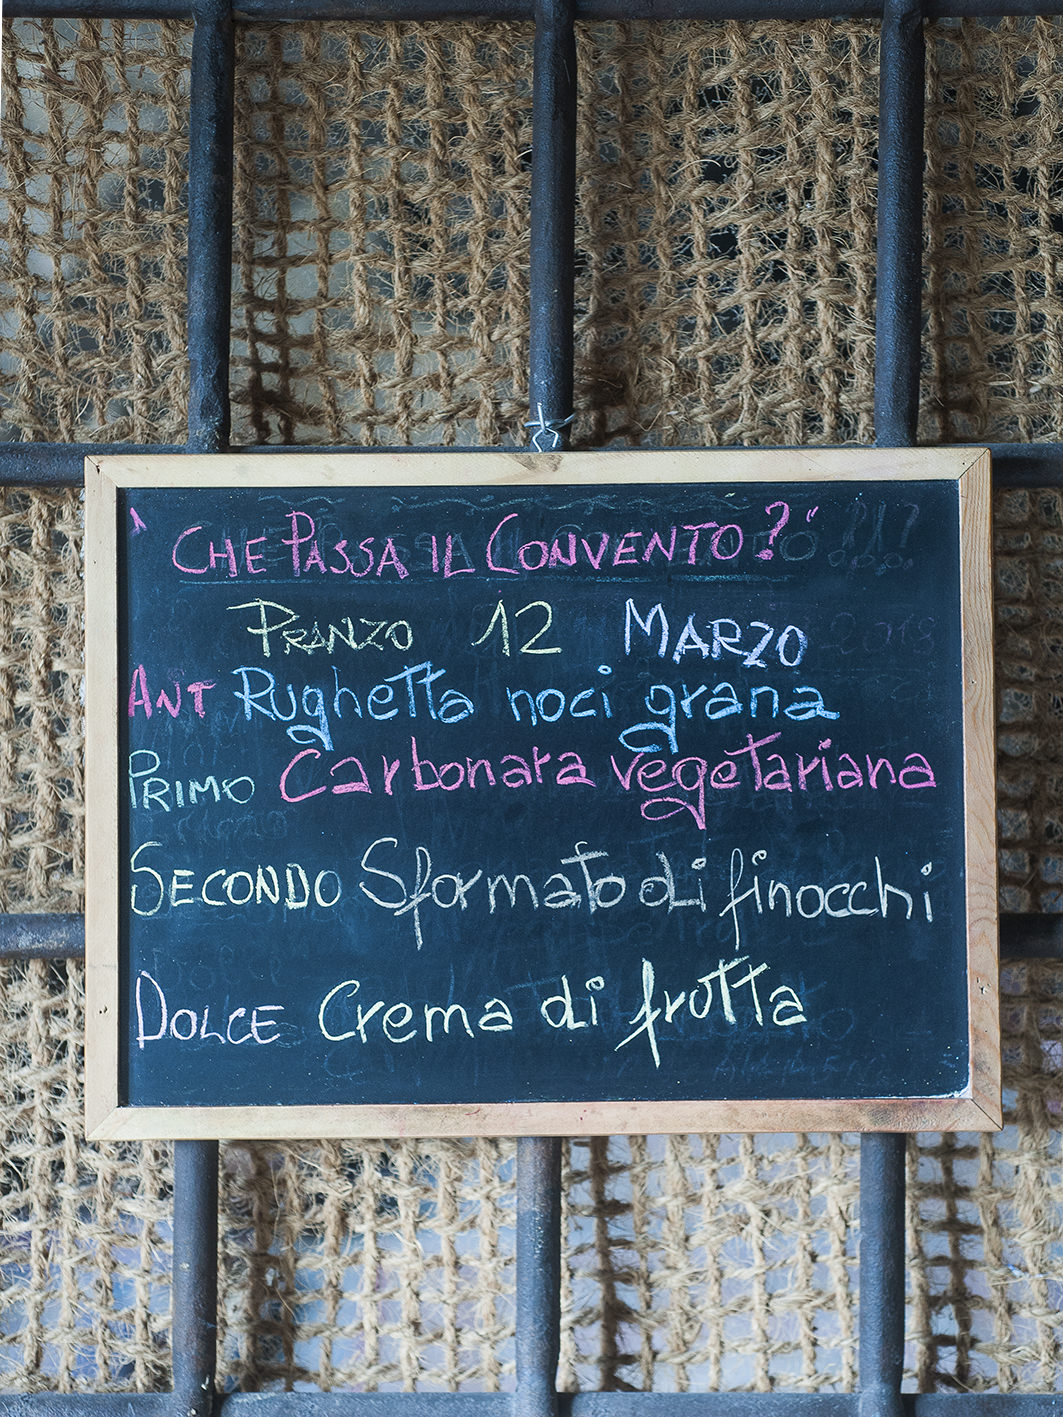 "CHE PASSA IL CONVENTO?"
PRANZO 12 MARZO
ANT Rughetta noci grana
PRIMO Carbonara vegetariana
SECONDO Sformato di finocchi
DOLCE Crema di frutta